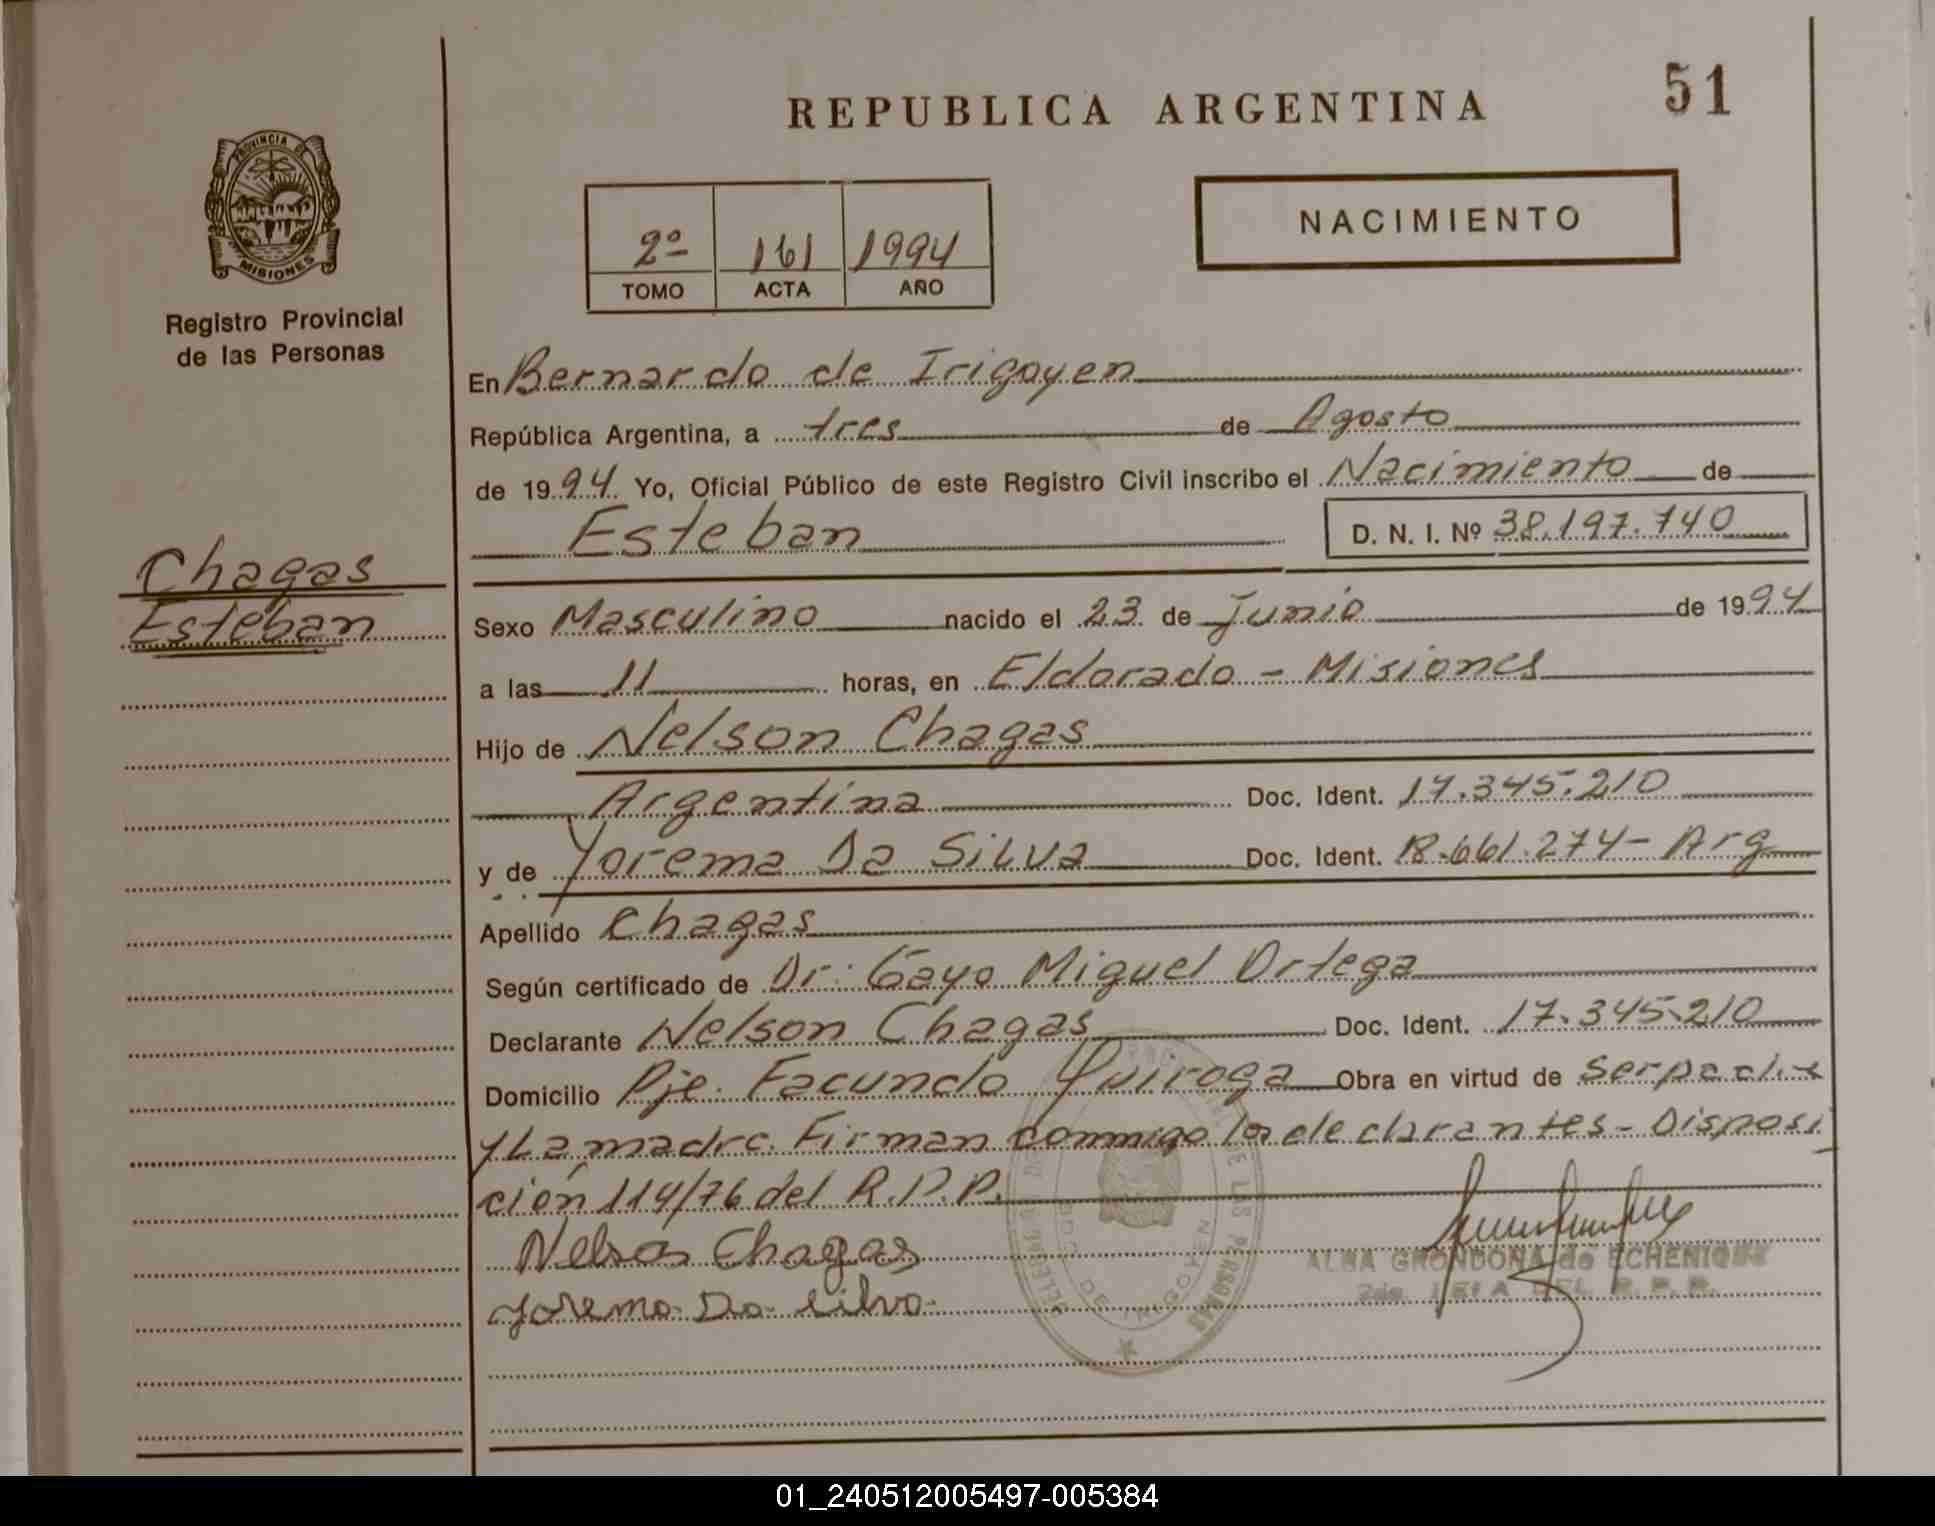 REPUBLICA ARGENTINA
51
PROVINCIA DE
MISIONES
Registro Provincial
de las Personas
2º 161 1994
TOMO ACTA AÑO
NACIMIENTO
En Bernardo de Irigoyen
República Argentina, a tres de Agosto
de 1994 Yo, Oficial Público de este Registro Civil inscribo el Nacimiento de
Esteban D. N. I. Nº 38.197.740
Chagas
Esteban
Sexo Masculino nacido el 23 de Junio de 1994
a las 11 horas, en Eldorado - Misiones
Hijo de Nelson Chagas
Argentina Doc. Ident. 17.345.210
y de Yorema Da Silva Doc. Ident. 18.661.274- Arg
Apellido Chagas
Según certificado de Dr. Gayo Miguel Ortega
Declarante Nelson Chagas Doc. Ident. 17.345.210
Domicilio Pje. Facundo Quiroga Obra en virtud de ser padre
y La madre. Firman conmigo los declarantes - Disposi
ción 114/76 del R.P.P.
Nelson Chagas
ALBA GRONDONA de ECHENIQUE
Yorema Da Silva
DE LAS PERSONAS
DO DE IRIGOYEN
01_240512005497-005384